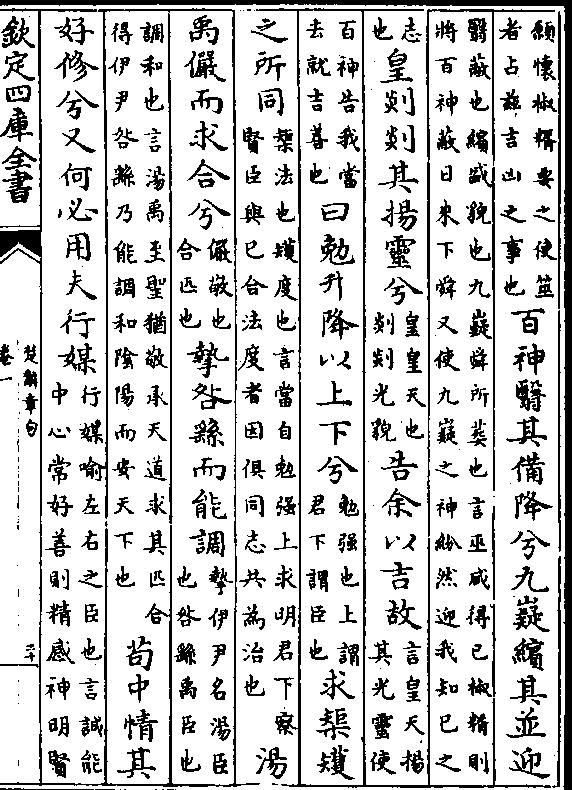 願懷椒糈要之使筮者占茲吉凶之事也百神翳其備降兮九嶷繽其並迎
翳蔽也繽盛貌也九嶷舜所葬也言巫咸得已椒糈則將百神蔽日來下舜又使九嶷之神紛然迎我知已之
志也皇剡剡其揚靈兮皇皇天也剡剡光貌告余以吉故言皇天揚其光靈使
百神告我當去就吉善也曰勉升降以上下兮勉强也上謂君下謂臣也求榘矱
之所同榘法也矱度也言當自勉强上求明君下察賢臣與已合法度者因俱同志共為治也湯
禹儼而求合兮儼敬也合匹也摯咎繇而能調摯伊尹名湯臣也咎繇禹臣也
調和也言湯禹至聖猶敬承天道求其匹合得伊尹咎繇乃能調和陰陽而安天下也苟中情其
好修兮又何必用夫行媒行媒喻左右之臣也言誠能中心常好善則精感神明賢
欽定四庫全書
楚辭章句
卷一
二十